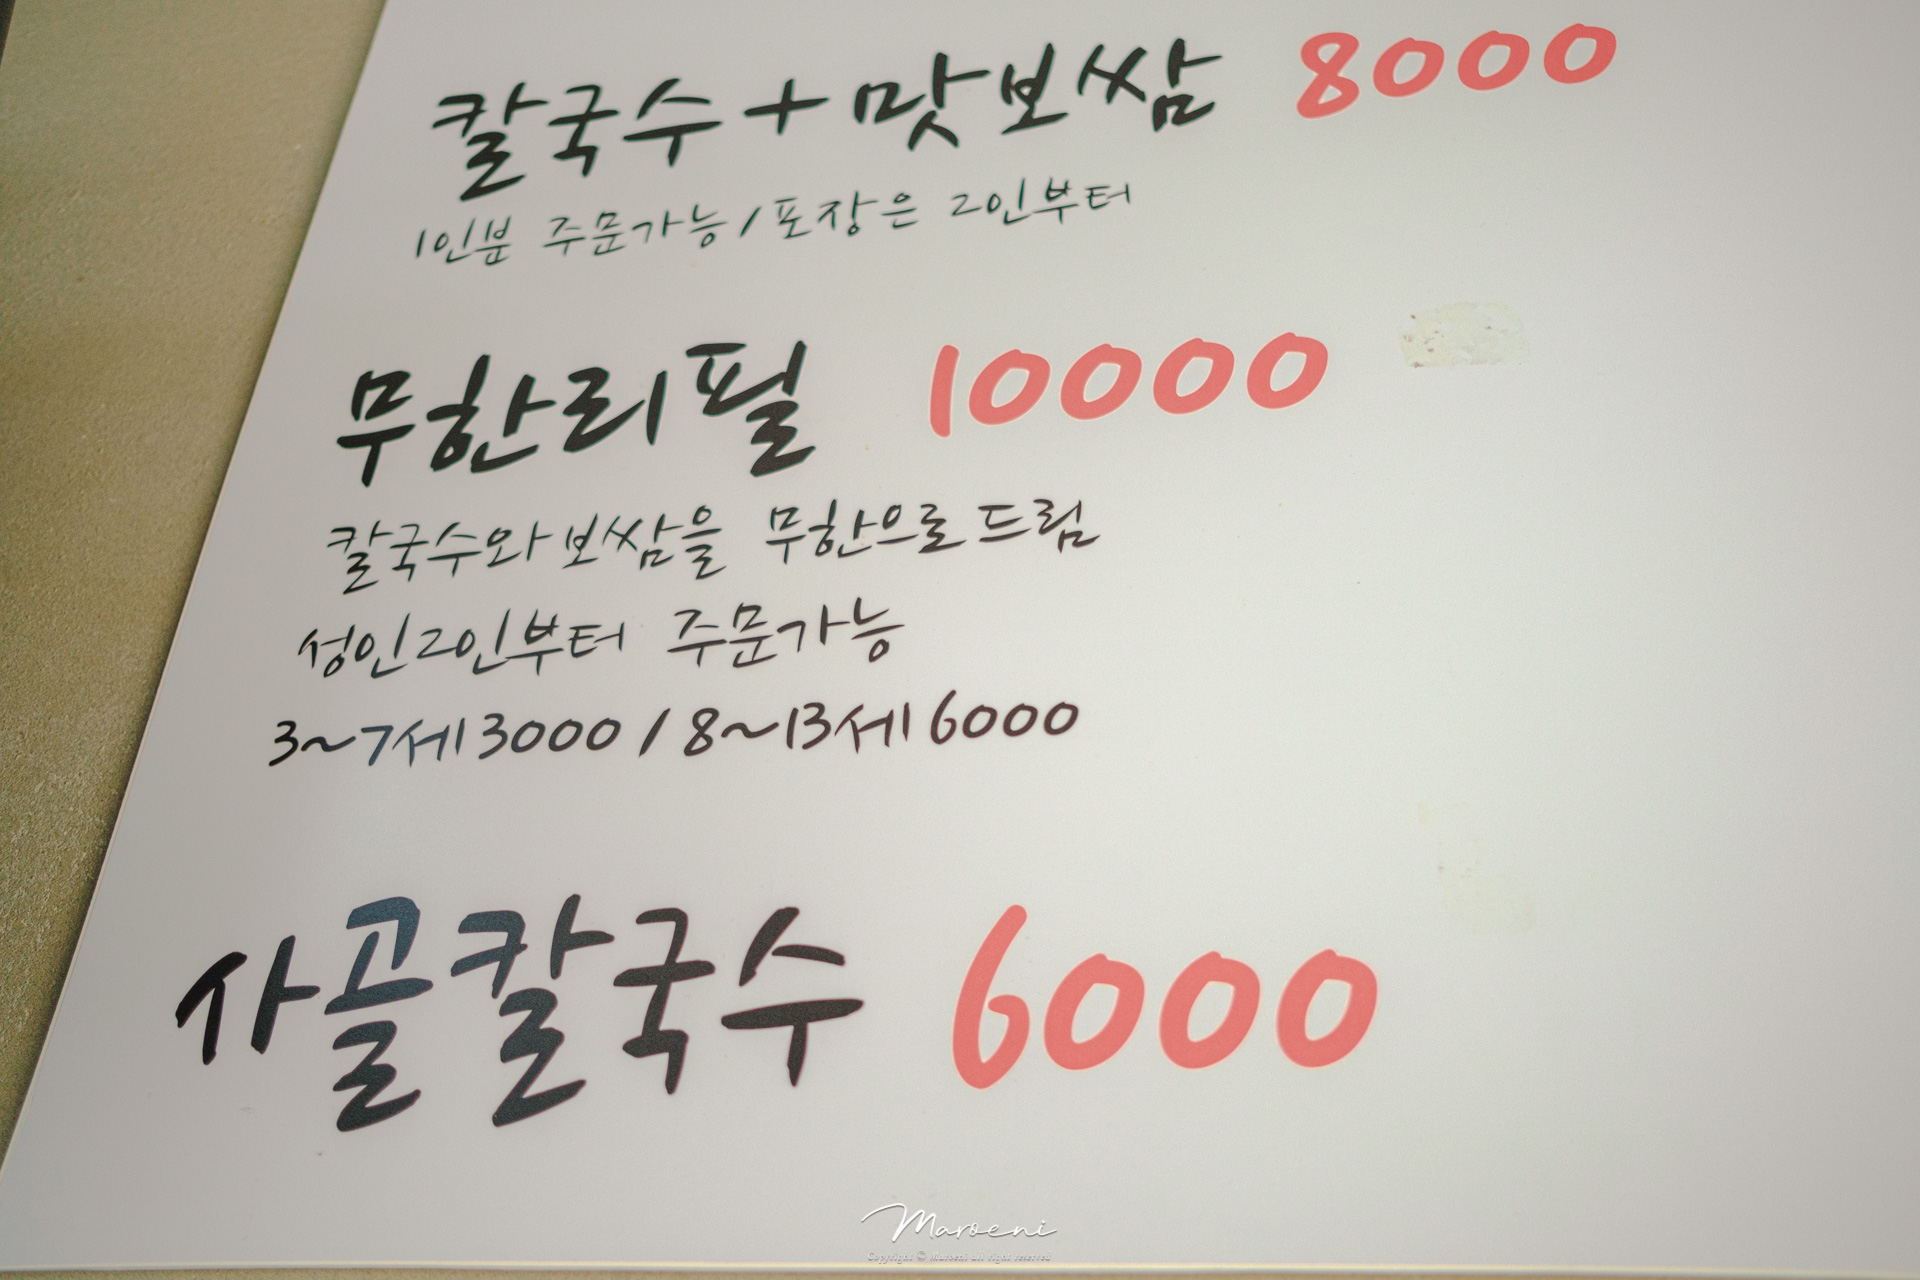 칼국수+맛보쌈 8000
1인분 주문가능/포장은 2인부터
무한리필 10000
칼국수와 보쌈을 무한으로 드림
성인2인부터 주문가능
3~7세 3000 / 8~13세 6000
사골칼국수 6000
Maroeni
Copyright © Maroeni all right reserved